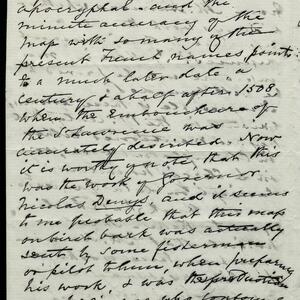 apocryphal - and the
minute accuracy of the
map with so many of the
present French names points
to a much later date, a
century & a half after 1508,
when the Embouchure of
the St Lawrence was
accurately described. Now
it is worthy to note that this
was the work of Governor
Nicolas Denys, and it seems
to me probable that this map
on birch bark was actually
sent by some fisherman
or pilot to him, when preparing
his work, & was the production